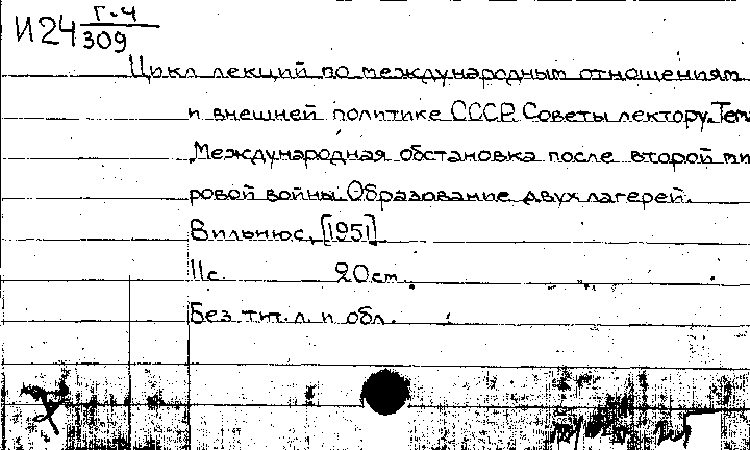 И24 Г-4
309
Цикл лекций по международным отношениям
и внешней политике СССР. Советы лектору. Тем
Международная обстановка после второй ми
ровой войны. Образование двух лагерей.
Вильнюс, [1951]
11с. 20см.
Без тит. л. и обл.